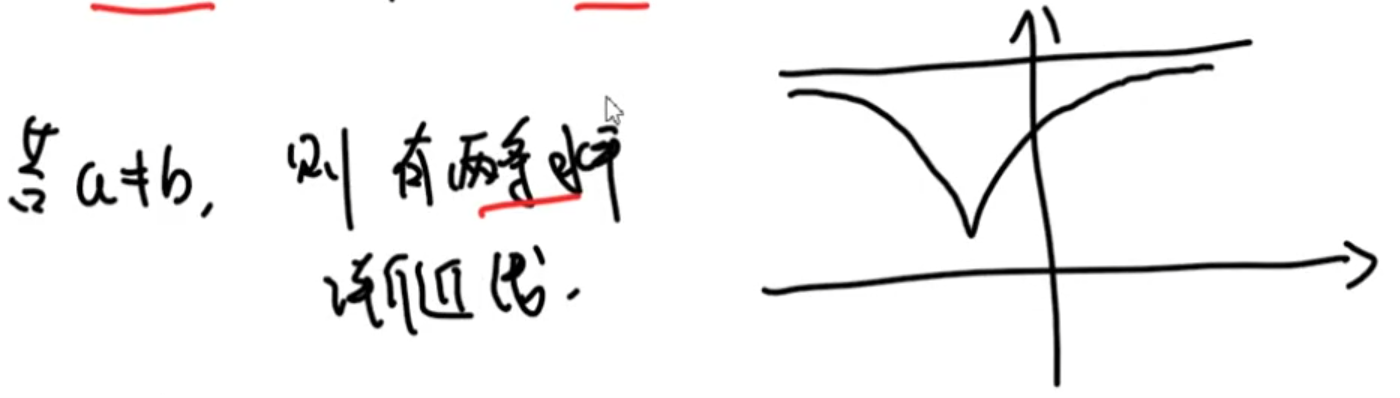 若 a≠b, 则 有两条水平
渐近线.